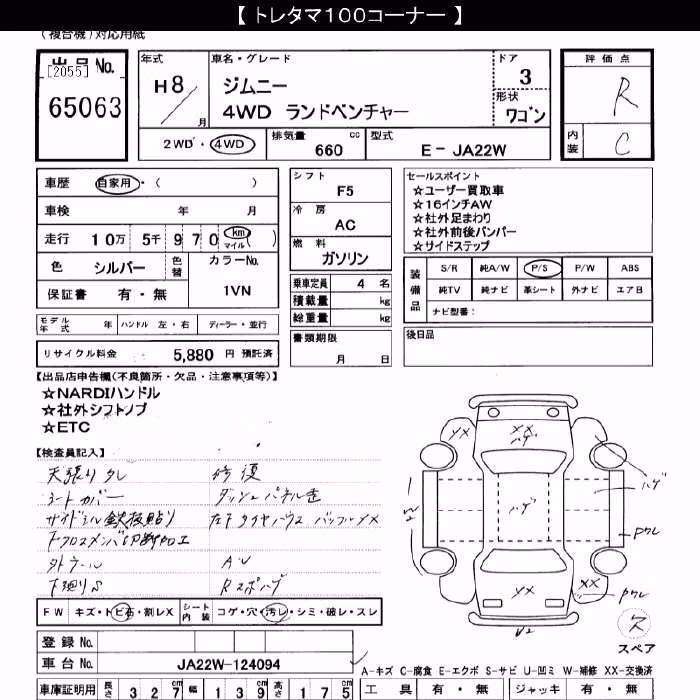 【 トレタマ100コーナー 】
(複合機)対応用紙
出品 No.
[2055]
65063
年式
H8/
月
車名・グレード
ジムニー
4WD ランドベンチャー
ドア
3
形状
ワゴン
評価点
R
内装
C
2WD・4WD
排気量 cc
660
型式
E- JA22W
車歴 自家用・( )
車検 年 月
走行 10万 5千 970 km マイル ( )
色 シルバー 色替
カラーNo.
1VN
保証書 有・無
シフト
F5
冷房
AC
燃料
ガソリン
乗車定員 4 名
積載量 kg
総重量 kg
書類期限
月 日
セールスポイント
☆ユーザー買取車
☆16インチAW
☆社外足まわり
☆社外前後バンパー
☆サイドステップ
装備品
S/R 純A/W P/S P/W ABS
純TV 純ナビ 革シート 外ナビ エアB
ナビ型番:
後日品
モデル年式 年 ハンドル 左・右 ディーラー・並行
リサイクル料金 5,880 円 預託済
【出品店申告欄(不良箇所・欠品・注意事項等)】
☆NARDIハンドル
☆社外シフトノブ
☆ETC
【検査員記入】
天張りタレ
シートカバー
サイドシル鉄板貼り
下クロスメンバ切断加工
外トノール
下廻りS
修復
ダッシュパネル歪
左Fタイヤハウス バッフルXX
AW
Rスポハゲ
XX
XX
ハゲ
ハゲ
ハゲ
W2
Pワレ
XX
XX
Pワレ
U2
ス
スペア
FW キズ・トビ石・割レX
シート内装 コゲ・穴・汚レ・シミ・破レ・スレ
登録 No.
車台 No. JA22W-124094
A-キズ C-腐食 E-エクボ S-サビ U-凹ミ W-補修 XX-交換済
車庫証明用 長さ 327 cm 幅 139 cm 高さ 175 cm
工具 有・無 ジャッキ 有・無